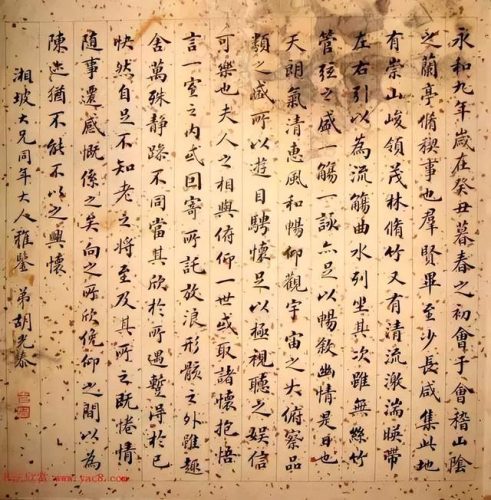 永和九年歲在癸丑暮春之初會于會稽山陰
之蘭亭脩稧事也羣賢畢至少長咸集此地
有崇山峻領茂林脩竹又有清流激湍暎帶
左右引以為流觴曲水列坐其次雖無絲竹
管弦之盛一觴一詠亦足以暢敘幽情是日也
天朗氣清惠風和暢仰觀宇宙之大俯察品
類之盛所以遊目騁懷足以極視聽之娛信
可樂也夫人之相與俯仰一世或取諸懷抱悟
言一室之內或因寄所託放浪形骸之外雖趣
舍萬殊靜躁不同當其欣於所遇暫得於己
快然自足不知老之將至及其所之既惓情
随事遷感慨係之矣向之所欣俛仰之間以為
陳迹猶不能不以之興懷
湘坡大兄同年大人雅鑒 弟胡光泰
www.yac8.com